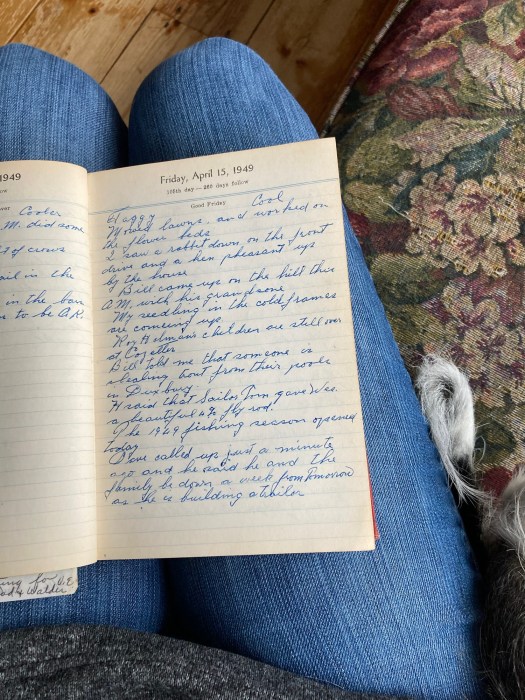 1949
Cooler
A.M. did some
of crows
ail in the
in the barn
to be O.K.
Friday, April 15, 1949
105th day — 260 days follow
Good Friday
Foggy Cool
Mowed lawns, and worked on
the flower beds
I saw a rabbit down on the front
drive and a hen pheasant up
by the house
Bill came up on the hill this
A.M. with his grandsone
My seedling in the coldframes
are comeing up.
Roy children are still over
at
Bill told me that someone is
stealing bout from their pools
in Duxbury.
H said that Sailor Tom gave Wes.
a beautiful fly rod.
The 1949 fishing season opened
today
Dave called up just a minute
ago and he said he and the
family be down a week from Tomorrow
as he is building a trailor
ing for
Walder.